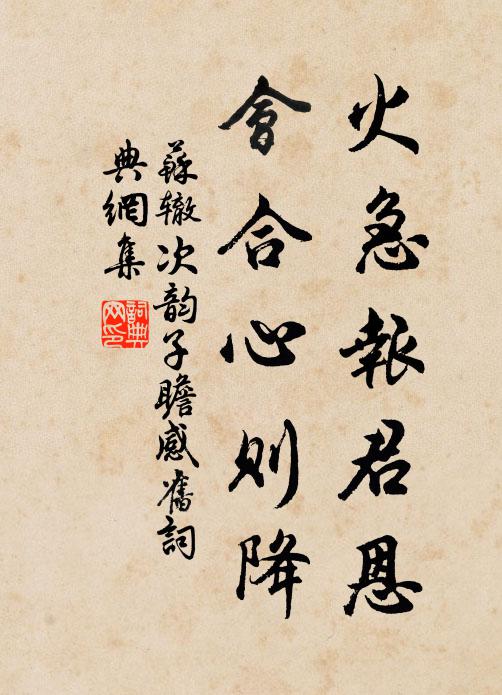 火急報君恩
會合心則降
蘇辙次韵子瞻感舊詞
典網集
詞典
网印